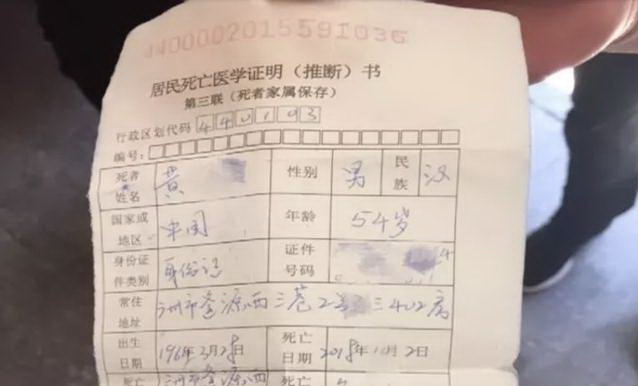 4400002015591036
居民死亡医学证明（推断）书
第三联（死者家属保存）
行政区划代码 440103
编号：
死者姓名 黄 性别 男 民族 汉
国家或地区 中国 年龄 54岁
身份证件类别 身份证 证件号码 4
常住地址 州市 源西三巷2 三402房
出生日期 196 年3月28日 死亡日期 2018年10月2日
死亡 州市 源西 死亡